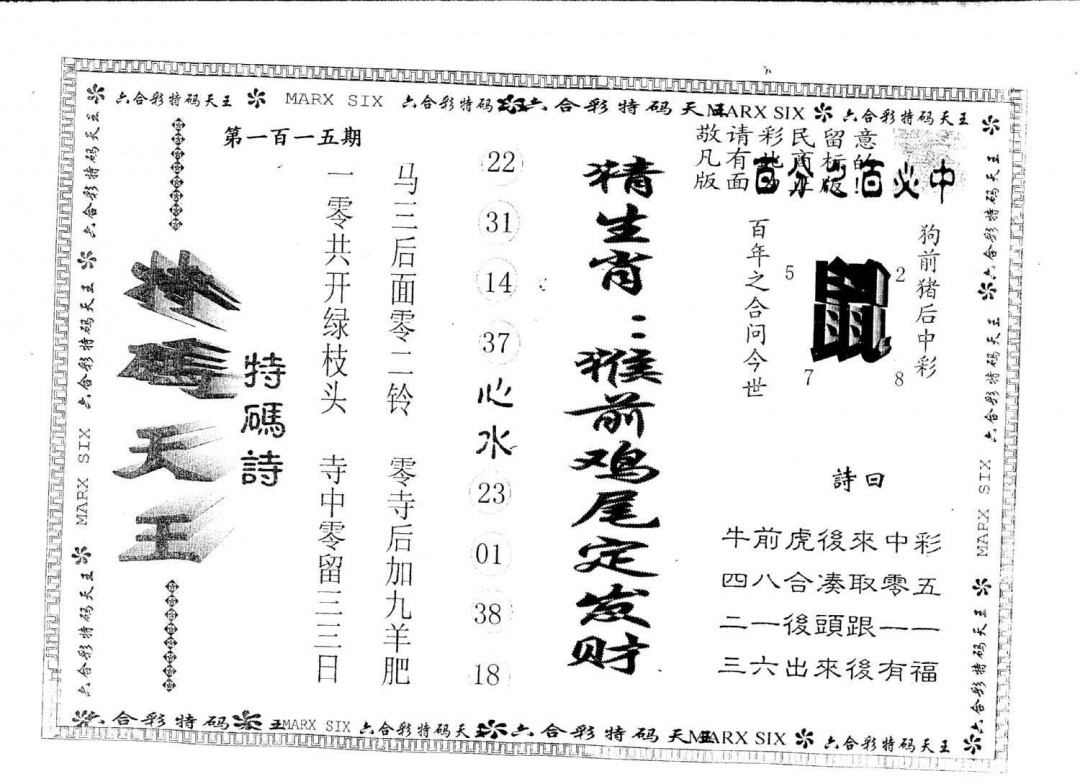 六合彩特码天王 MARX SIX 六合彩特码 六合彩特码天王 MARX SIX 六合彩特码天王
敬请彩民留意
凡有此商标的
版面为正版！
百分之百必中
狗前猪后中彩
鼠
5
2
7
8
百年之合问今世
詩曰
牛前虎後來中彩
四八合凑取零五
二一後頭跟一一
三六出來後有福
猜生肖：猴前鸡尾定发财
22
31
14
37
心水
23
01
38
18
第一百一五期
马三后面零二铃 零寺后加九羊肥
一零共开绿枝头 寺中零留三三日
特碼詩
特碼天王
六合彩特码天王
六合彩特码天王
MARX SIX
六合彩特码天王
六合彩特码天王
六合彩特码天王
MARX SIX
六合彩特码天王
六合彩特码 王 MARX SIX 六合彩特码天王 六合彩特码天王 MARX SIX 六合彩特码天王